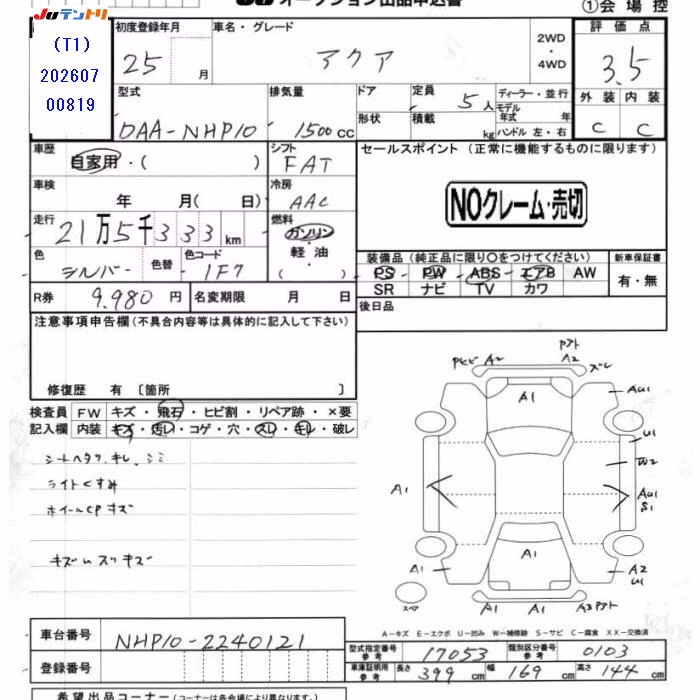 JUテントリ
(T1)
202607
00819
①会場控
初度登録年月
25 月
車名・グレード
アクア
2WD
・
4WD
評価点
3.5
型式
DAA-NHP10
排気量
1500cc
ドア
形状
定員
5人
積載
kg
ディーラー・並行
モデル年式 年式
ハンドル 左・右
外装 内装
C C
車歴
自家用・( )
シフト
FAT
セールスポイント (正常に機能するものに限ります)
車検
年 月( 日)
冷房
AAC
NOクレーム・売切
走行
21万5千333km
燃料
ガソリン
・
軽油
( )
色
シルバー
色替
色コード
1F7
装備品 (純正品に限り〇をつけてください)
PS PW ABS エアB AW
SR ナビ TV カワ
新車保証書
有・無
R券 9.980円
名変期限 月 日
後日品
注意事項申告欄(不具合内容等は具体的に記入して下さい)
修復歴 有 〔箇所 〕
検査員記入欄
FW キズ・飛石・ヒビ割・リペア跡・×要
内装 キズ・汚レ・コゲ・穴・スレ・キレ・破レ
シートヘタリ.キレ.シミ
ライトくすみ
ホイールCPキズ
A2
A2
ズレ
A1
AU1
U1
W2
A1
AU1
S1
A1
A1
A1
A2
U1
A1
スペア
A-キズ E-エクボ U-凹み W-補修跡 S-サビ C-腐食 XX-交換済
車台番号
NHP10-2240121
登録番号
型式指定番号
参考
17053
類別区分番号
参考
0103
車庫証明用
参考
長さ 399cm
幅 169cm
高さ 144cm
希望出品コーナー(コーナーは各会場により異なります)